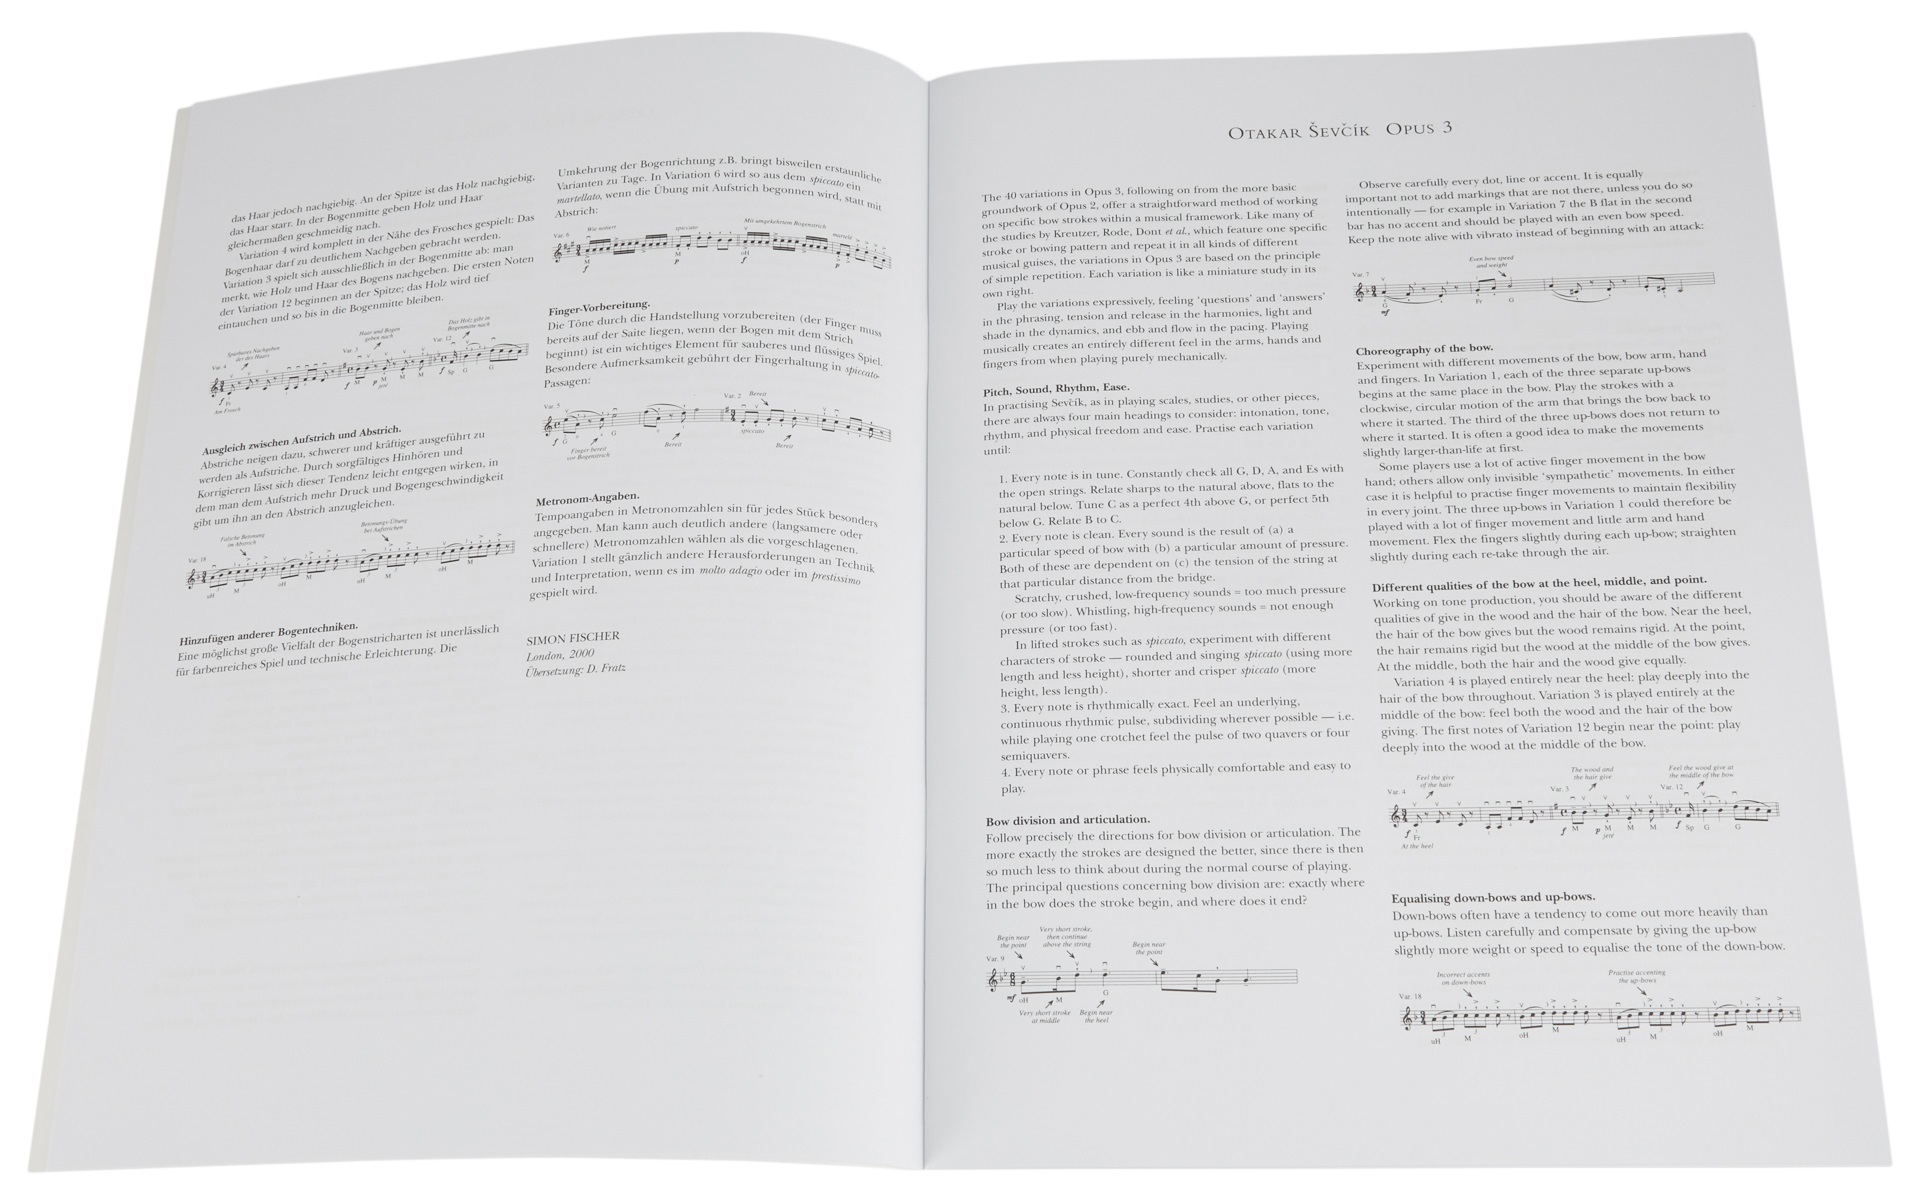 das Haar jedoch nachgiebig. An der Spitze ist das Holz nachgiebig,
das Haar starr. In der Bogenmitte geben Holz und Haar
gleichermaßen geschmeidig nach.
Variation 4 wird komplett in der Nähe des Frosches gespielt: Das
Bogenhaar darf zu deutlichem Nachgeben gebracht werden.
Variation 3 spielt sich ausschließlich in der Bogenmitte ab: man
merkt, wie Holz und Haar des Bogens nachgeben. Die ersten Noten
der Variation 12 beginnen an der Spitze; das Holz wird tief
eintauchen und so bis in die Bogenmitte bleiben.
Spürbares Nachgeben
der des Haars
Haar und Bogen
geben nach
Das Holz gibt in
Bogenmitte nach
Var. 4
Var. 3
Var. 12
f Fr
f M p M M M f Sp G G
jeté
Am Frosch
Ausgleich zwischen Aufstrich und Abstrich.
Abstriche neigen dazu, schwerer und kräftiger ausgeführt zu
werden als Aufstriche. Durch sorgfältiges Hinhören und
Korrigieren lässt sich dieser Tendenz leicht entgegen wirken, in
dem man dem Aufstrich mehr Druck und Bogengeschwindigkeit
gibt um ihn an den Abstrich anzugleichen.
Falsche Betonung
im Abstrich
Betonungs Übung
bei Aufstrichen
Var. 18
uH M oH M oH M oH M
Hinzufügen anderer Bogentechniken.
Eine möglichst große Vielfalt der Bogenstricharten ist unerlässlich
für farbenreiches Spiel und technische Erleichterung. Die
Umkehrung der Bogenrichtung z.B. bringt bisweilen erstaunliche
Varianten zu Tage. In Variation 6 wird so aus dem spiccato ein
martellato, wenn die Übung mit Aufstrich begonnen wird, statt mit
Abstrich:
Var. 6
Wie notiert
spiccato
Mit umgekehrtem Bogenstrich
martelé
M
f p
oH
f p
Finger-Vorbereitung.
Die Töne durch die Handstellung vorzubereiten (der Finger muss
bereits auf der Saite liegen, wenn der Bogen mit dem Strich
beginnt) ist ein wichtiges Element für sauberes und flüssiges Spiel.
Besondere Aufmerksamkeit gebührt der Fingerhaltung in spiccato-
Passagen:
Var. 5
Var. 2
Bereit
f G G
spiccato
Finger bereit
vor Bogenstrich
Bereit
Bereit
Metronom-Angaben.
Tempoangaben in Metronomzahlen sin für jedes Stück besonders
angegeben. Man kann auch deutlich andere (langsamere oder
schnellere) Metronomzahlen wählen als die vorgeschlagenen.
Variation 1 stellt gänzlich andere Herausforderungen an Technik
und Interpretation, wenn es im molto adagio oder im prestissimo
gespielt wird.
SIMON FISCHER
London, 2000
Übersetzung: D. Fratz
OTAKAR ŠEVČÍK OPUS 3
The 40 variations in Opus 3, following on from the more basic
groundwork of Opus 2, offer a straightforward method of working
on specific bow strokes within a musical framework. Like many of
the studies by Kreutzer, Rode, Dont et al., which feature one specific
stroke or bowing pattern and repeat it in all kinds of different
musical guises, the variations in Opus 3 are based on the principle
of simple repetition. Each variation is like a miniature study in its
own right.
Play the variations expressively, feeling ‘questions’ and ‘answers’
in the phrasing, tension and release in the harmonies, light and
shade in the dynamics, and ebb and flow in the pacing. Playing
musically creates an entirely different feel in the arms, hands and
fingers from when playing purely mechanically.
Pitch, Sound, Rhythm, Ease.
In practising Sevčík, as in playing scales, studies, or other pieces,
there are always four main headings to consider: intonation, tone,
rhythm, and physical freedom and ease. Practise each variation
until:
1. Every note is in tune. Constantly check all G, D, A, and Es with
the open strings. Relate sharps to the natural above, flats to the
natural below. Tune C as a perfect 4th above G, or perfect 5th
below G. Relate B to C.
2. Every note is clean. Every sound is the result of (a) a
particular speed of bow with (b) a particular amount of pressure.
Both of these are dependent on (c) the tension of the string at
that particular distance from the bridge.
Scratchy, crushed, low-frequency sounds = too much pressure
(or too slow). Whistling, high-frequency sounds = not enough
pressure (or too fast).
In lifted strokes such as spiccato, experiment with different
characters of stroke — rounded and singing spiccato (using more
length and less height), shorter and crisper spiccato (more
height, less length).
3. Every note is rhythmically exact. Feel an underlying,
continuous rhythmic pulse, subdividing wherever possible — i.e.
while playing one crotchet feel the pulse of two quavers or four
semiquavers.
4. Every note or phrase feels physically comfortable and easy to
play.
Bow division and articulation.
Follow precisely the directions for bow division or articulation. The
more exactly the strokes are designed the better, since there is then
so much less to think about during the normal course of playing.
The principal questions concerning bow division are: exactly where
in the bow does the stroke begin, and where does it end?
Begin near
the point
Very short stroke,
then continue
above the string
Begin near
the point
Var. 9
mf oH M G
Very short stroke
at middle
Begin near
the heel
Observe carefully every dot, line or accent. It is equally
important not to add markings that are not there, unless you do so
intentionally — for example in Variation 7 the B flat in the second
bar has no accent and should be played with an even bow speed.
Keep the note alive with vibrato instead of beginning with an attack:
Even bow speed
and weight
Var. 7
G Fr G
mf
Choreography of the bow.
Experiment with different movements of the bow, bow arm, hand
and fingers. In Variation 1, each of the three separate up-bows
begins at the same place in the bow. Play the strokes with a
clockwise, circular motion of the arm that brings the bow back to
where it started. The third of the three up-bows does not return to
where it started. It is often a good idea to make the movements
slightly larger-than-life at first.
Some players use a lot of active finger movement in the bow
hand; others allow only invisible ‘sympathetic’ movements. In either
case it is helpful to practise finger movements to maintain flexibility
in every joint. The three up-bows in Variation 1 could therefore be
played with a lot of finger movement and little arm and hand
movement. Flex the fingers slightly during each up-bow; straighten
slightly during each re-take through the air.
Different qualities of the bow at the heel, middle, and point.
Working on tone production, you should be aware of the different
qualities of give in the wood and the hair of the bow. Near the heel,
the hair of the bow gives but the wood remains rigid. At the point,
the hair remains rigid but the wood at the middle of the bow gives.
At the middle, both the hair and the wood give equally.
Variation 4 is played entirely near the heel: play deeply into the
hair of the bow throughout. Variation 3 is played entirely at the
middle of the bow: feel both the wood and the hair of the bow
giving. The first notes of Variation 12 begin near the point: play
deeply into the wood at the middle of the bow.
Feel the give
of the hair
The wood and
the hair give
Feel the wood give at
the middle of the bow
Var. 4
Var. 3
Var. 12
f Fr
f M p M M M f Sp G G
jeté
At the heel
Equalising down-bows and up-bows.
Down-bows often have a tendency to come out more heavily than
up-bows. Listen carefully and compensate by giving the up-bow
slightly more weight or speed to equalise the tone of the down-bow.
Incorrect accents
on down-bows
Practise accenting
the up-bows
Var. 18
uH M oH M uH M oH M